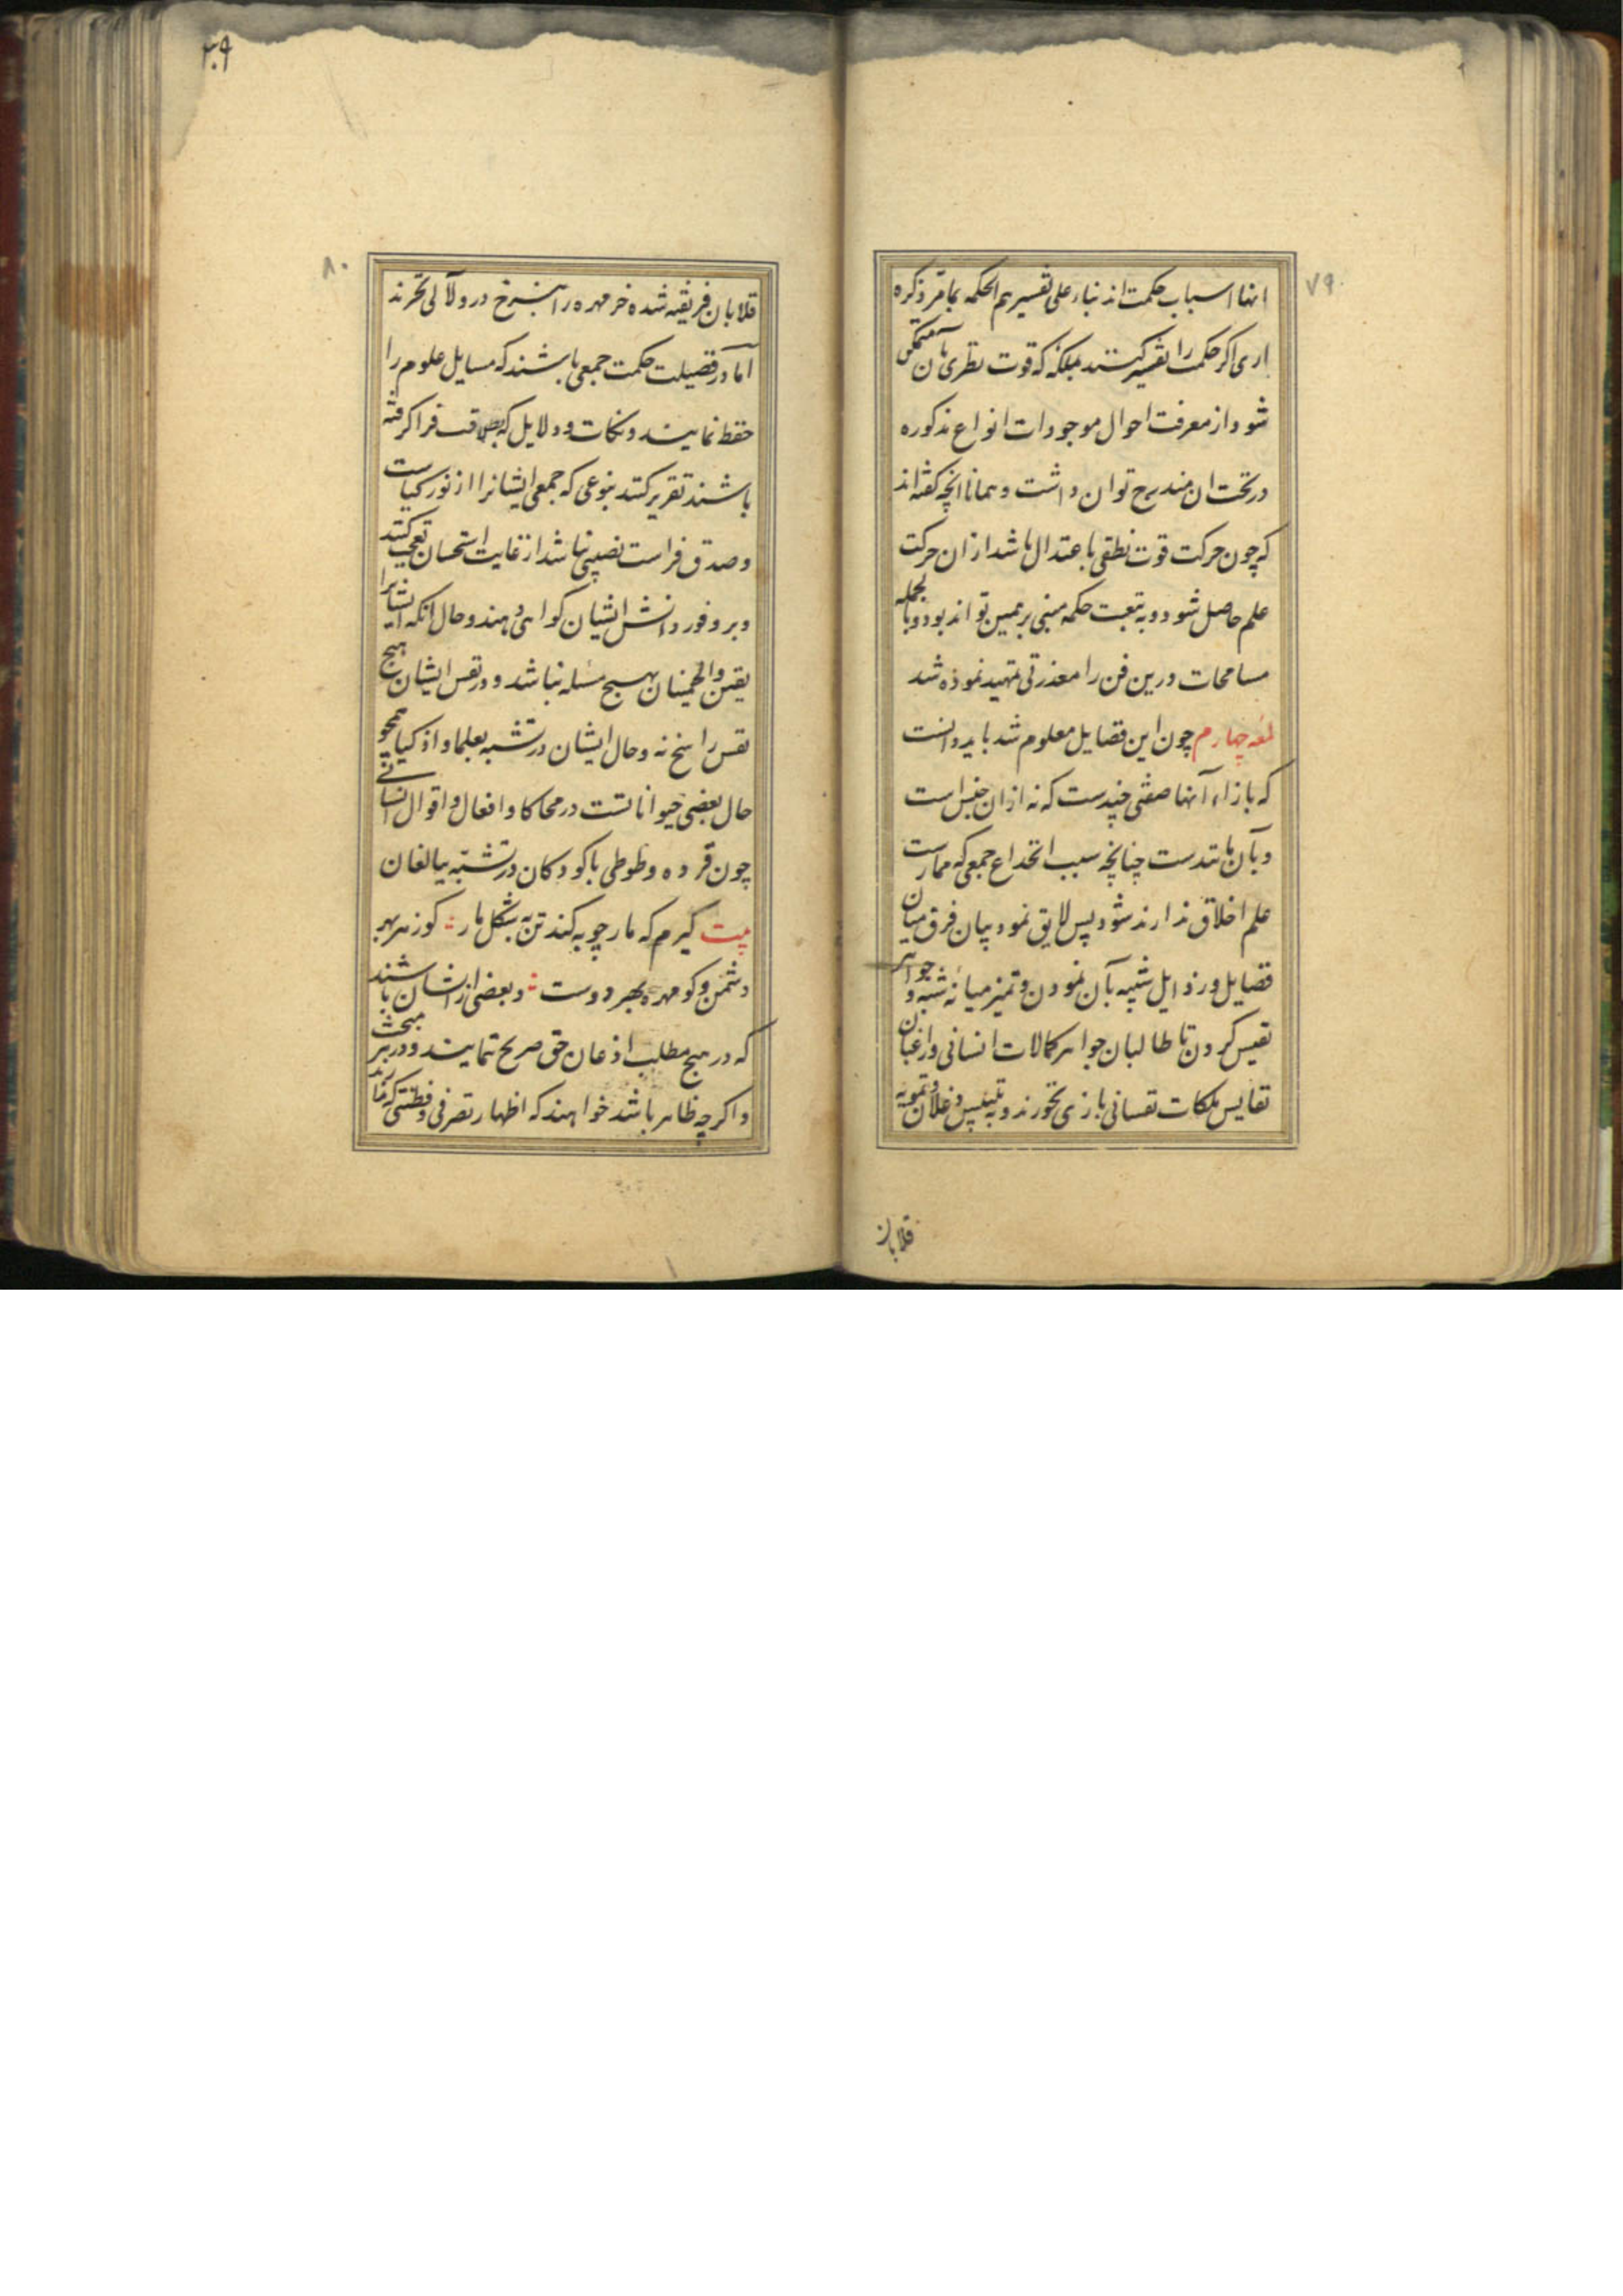 ۷۹
انها اسباب حکمت اند بناء علی تفسیرهم الحکمه بما مر ذکره
اری اکر حکمت را تفسیر کنند بملکه که قوت نظری بان مستکمل
شود از معرفت احوال موجودات انواع مذکوره
در تحت ان مندرج توان داشت و همانا انچه کفته اند
که چون حرکت قوت نطقی باعتدال باشد از ان حرکت
علم حاصل شود و به تبعیت حکمه مبنی بر همین تواند بود و بالجمله
مسامحات درین فن را معذرتی تمهید نموده شد
لمعه چهارم چون این فضایل معلوم شد باید دانست
که بازاء آنها صفتی چندست که نه از ان جنس است
و بآن مانندست چنانچه سبب انخداع جمعی که ممارست
علم اخلاق ندارند شود پس لایق نمود بیان فرق میان
فضایل و رذایل شبیه بآن نمودن و تمیز میانه شبه و جواهر
نفیس کردن تا طالبان جواهر کمالات انسانی و راغبان
نفایس ملکات نفسانی بازی نخورند و به تلبیس دغلان و تمویه
قلابان
۳۰۹
۸۰
قلابان فریفته شده خر مهره را بنرخ در و لآلی نخرند
اما در فضیلت حکمت جمعی باشند که مسایل علوم را
حفظ نمایند و نکات و دلایل که فرا کرفته
باشند تقریر کنند بنوعی که جمعی ایشانرا از نور کیاست
و صدق فراست نصیبی نباشد از غایت استحسان تعجب کنند
و بر وفور دانش ایشان کواهی دهند و حال انکه ایشانرا
یقین و اطمینان بهیچ مسئله نباشد و در نفس ایشان هیچ
نفس راسخ نه و حال ایشان در تشبه بعلما و اذکیا همچو
حال بعضی حیواناتست در محاکا و افعال و اقوال انسانی
چون قرده و طوطی با کودکان در تشبه ببالغان
بیت کیرم که مارچوبه کند تن بشکل مار : کو زهر بهر
دشمن و کو مهره بهر دوست : و بعضی از ایشان باشند
که در هیچ مطلب اذعان حق صریح ننمایند و در هر مبحث
و اکرچه ظاهر باشد خواهند که اظهار تصرفی و فطنتی که ندارند